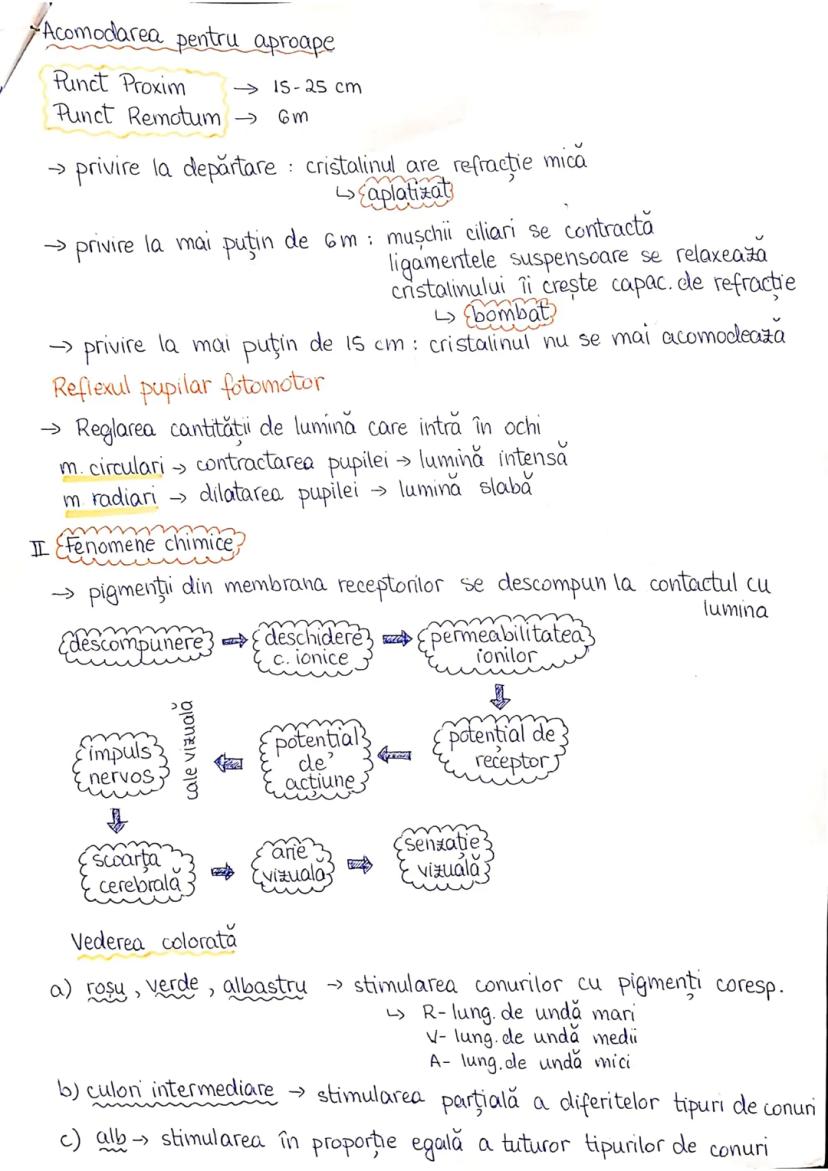 Acomodarea pentru aproape
Punct Proxim → 15-25 cm
Punct Remotum → 6m
→ privire la depărtare : cristalinul are refracție mică
↳ aplatizat
→ privire la mai puțin de 6m : mușchii ciliari se contractă
ligamentele suspensoare se relaxează
cristalinului îi crește capac. de refracție
↳ bombat
→ privire la mai puțin de 15 cm : cristalinul nu se mai acomodează
Reflexul pupilar fotomotor
→ Reglarea cantității de lumină care intră în ochi
m. circulari → contractarea pupilei → lumină intensă
m radiari → dilatarea pupilei → lumină slabă
II Fenomene chimice
→ pigmenții din membrana receptorilor se descompun la contactul cu
lumina
descompunere ⇒ deschidere c. ionice ⇒ permeabilitatea ionilor
⇓
potențial de receptor
⇐ potențial de acțiune
⇐ cale vizuală
impuls nervos
⇓
scoarța cerebrală ⇒ arie vizuală ⇒ senzație vizuală
Vederea colorată
a) roșu, verde, albastru → stimularea conurilor cu pigmenți coresp.
↳ R- lung. de undă mari
V- lung. de undă medii
A- lung. de undă mici
b) culori intermediare → stimularea parțială a diferitelor tipuri de conuri
c) alb → stimularea în proporție egală a tuturor tipurilor de conuri